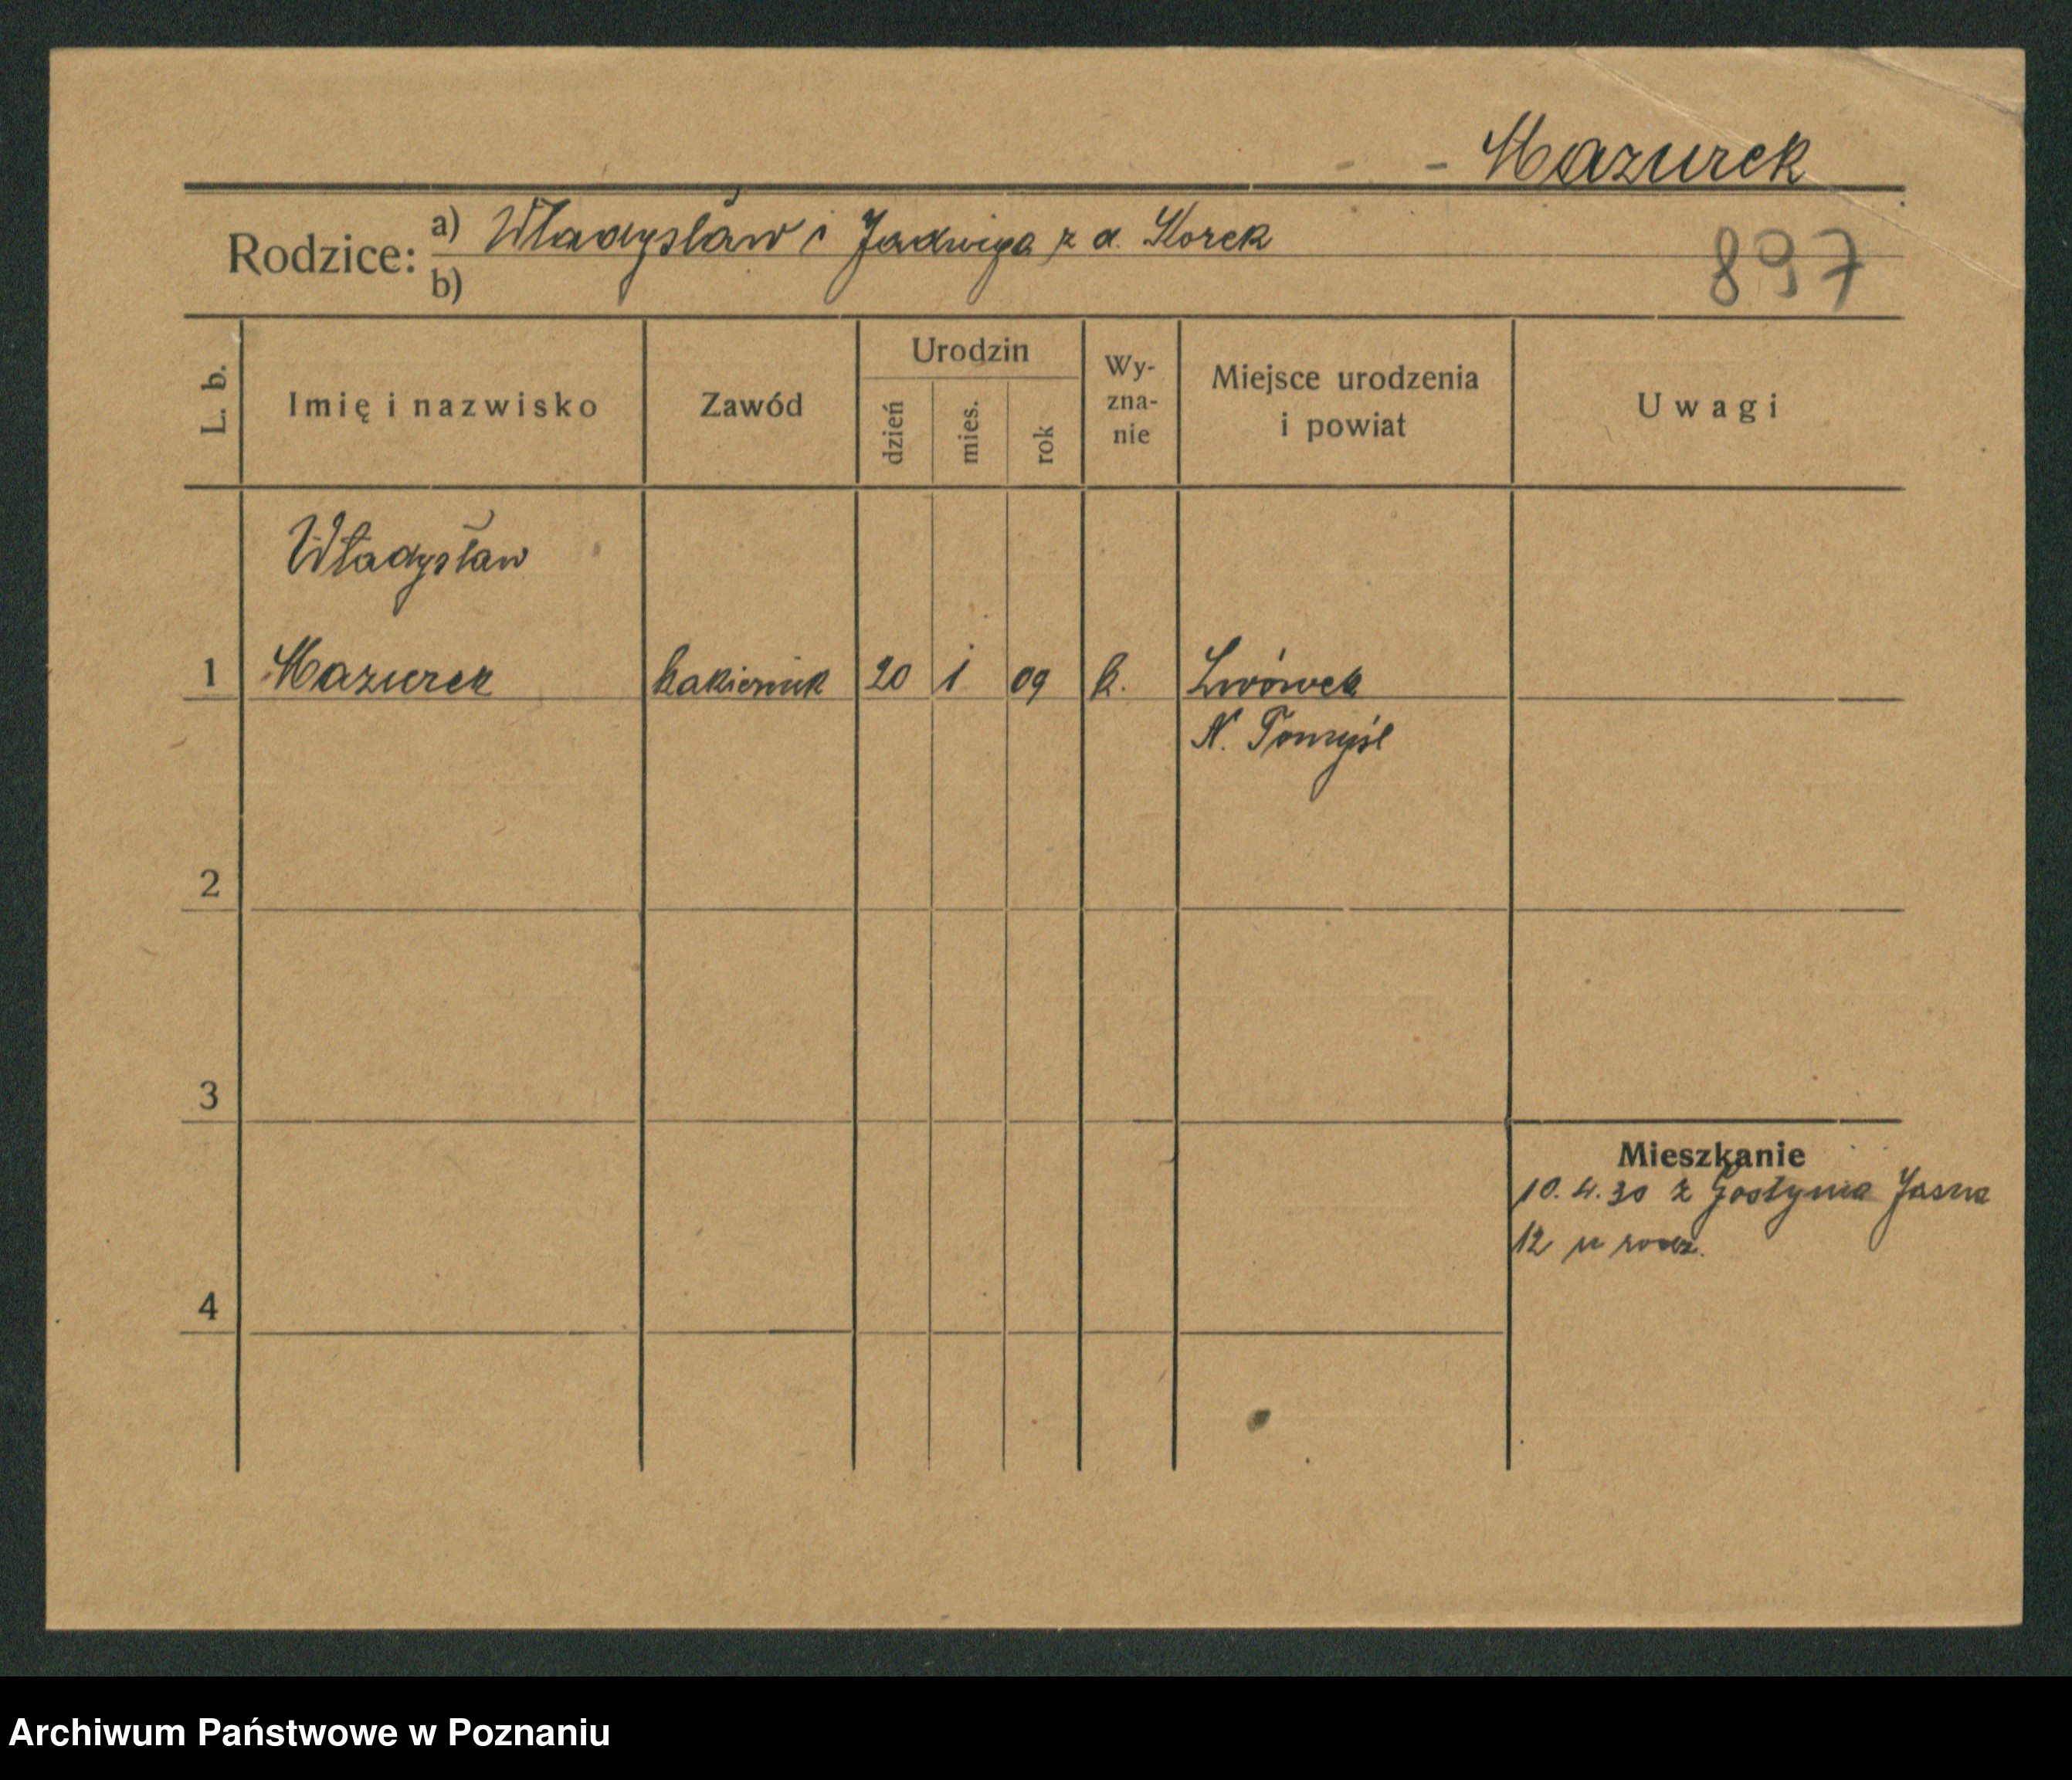 Mazurek
Rodzice: a) Władysław i Jadwiga z d. Korek
b)
897
L. b.
Imię i nazwisko
Zawód
Urodzin
dzień
mies.
rok
Wy-
zna-
nie
Miejsce urodzenia
i powiat
Uwagi
Władysław
1 Mazurek lakiernik 20 1 09 k. Lwówek
N. Tomyśl
2
3
4
Mieszkanie
10. 4. 30 z Gostynia Jasna
12 u rodz.
Archiwum Państwowe w Poznaniu